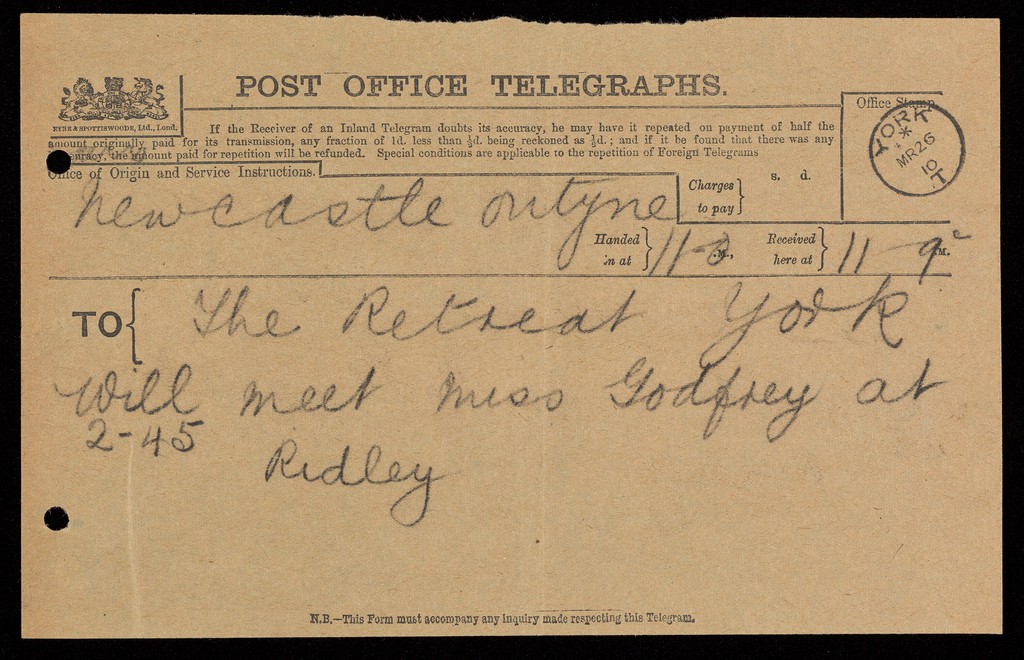 POST OFFICE TELEGRAPHS.
EYRE & SPOTTISWOODE, Ltd., Lond.
If the Receiver of an Inland Telegram doubts its accuracy, he may have it repeated on payment of half the
amount originally paid for its transmission, any fraction of 1d. less than ½d. being reckoned as ½d.; and if it be found that there was any
the amount paid for repetition will be refunded. Special conditions are applicable to the repetition of Foreign Telegrams
Office Stamp.
YORK
MR 26
10
T
Office of Origin and Service Instructions.
Charges
to pay
s. d.
Newcastle ontyne
Handed
in at
11-3 M.,
Received
here at
11-9 M.
TO
The Retreat York
Will meet Miss Godfrey at
2-45
Ridley
N.B.—This Form must accompany any inquiry made respecting this Telegram.